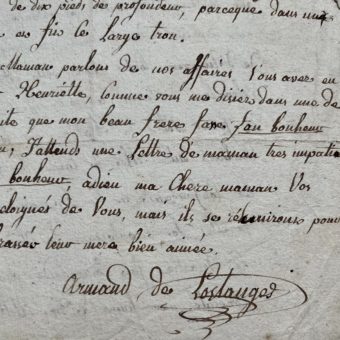 de dix pieds de profondeur, parceque dans une
fis le Large tron.
Maman parlons de nos affaires Vous avez en
Henriette, comme vous me disiez dans une de
que mon beau frere fasse son bonheur
J'attends une Lettre de maman tres impatie
bonheur, adieu ma Chere maman Vos
eloignés de Vous, mais ils se réuniront pour
leur mere bien aimée.
Armand de Lostanges